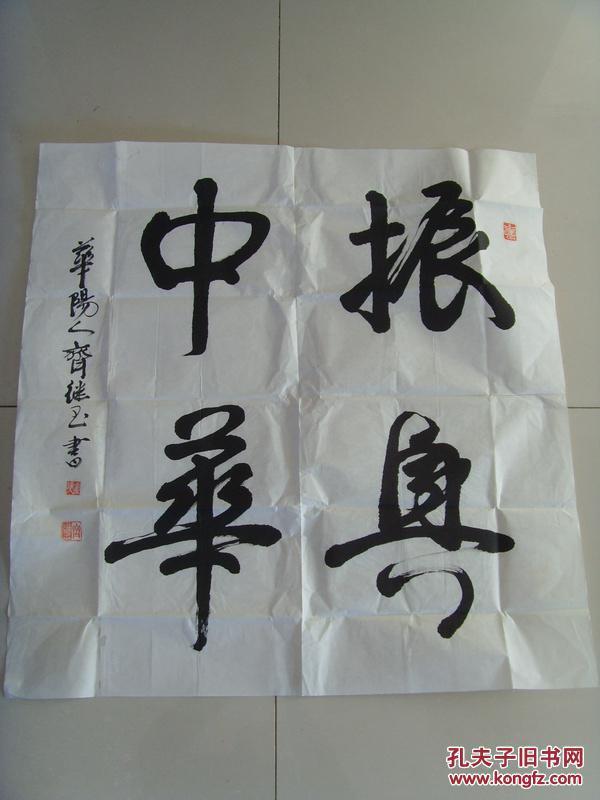 振興
中華
華陽人齊继玉書
孔夫子旧书网
www.kongfz.com